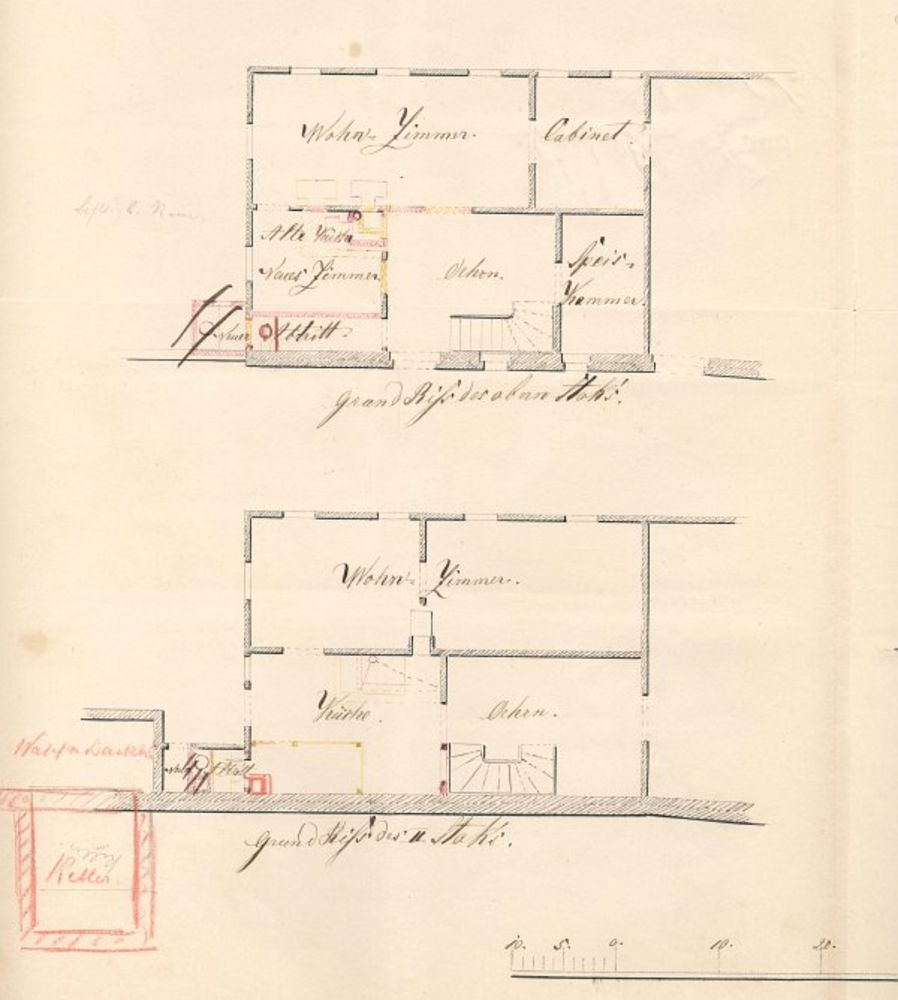 Wohn- Zimmer.
Cabinet.
Alte Küche
Neues Zimmer
Oehrn.
Speis-
Kammer.
Abtritt.
Grund Riß des obern Stoks.
Wohn- Zimmer.
Küche.
Oehrn.
Grund Riß des II Stoks.
Keller.
10. 5. 0. 10. 20.